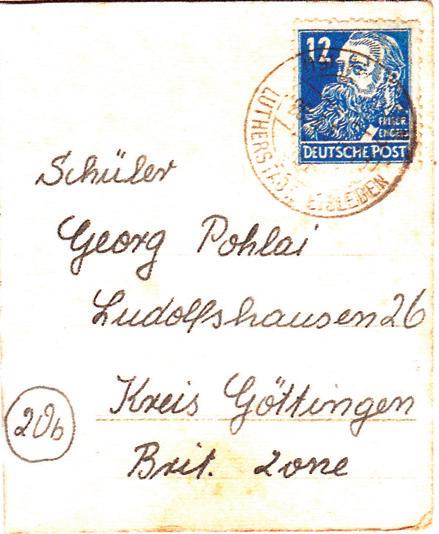 12
FRIEDR. ENGELS
DEUTSCHE POST
LUTHERSTADT EISLEBEN
Schüler
Georg Pohlai
Ludolfshausen 26
Kreis Göttingen
20b
Brit. Zone